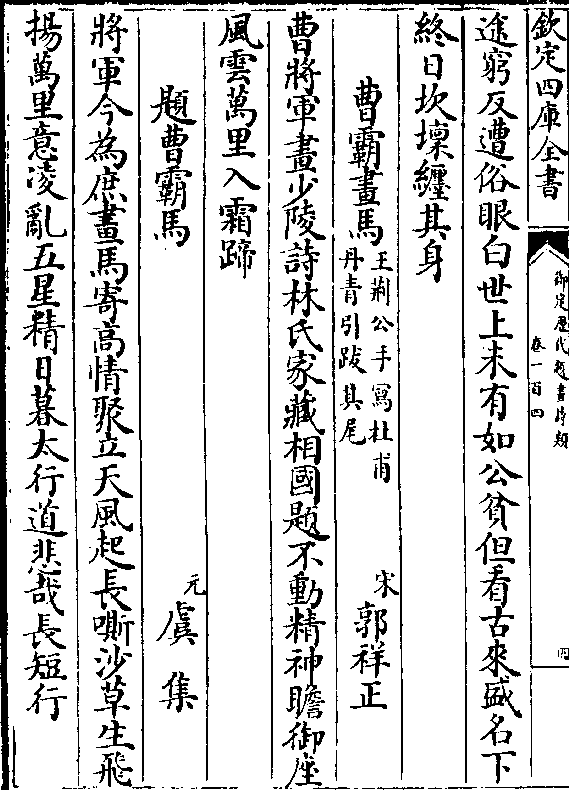 欽定四庫全書
御定歷代題畫詩類
卷一百四
四
途窮反遭俗眼白世上未有如公貧但看古來盛名下
終日坎壈纏其身
曹霸畫馬王荆公手寫杜甫丹青引跋其尾 宋 郭祥正
曹將軍畫少陵詩林氏家藏相國題不動精神瞻御座
風雲萬里入霜蹄
題曹霸馬 元 虞集
將軍今為庶畫馬寄高情聚立天風起長嘶沙草生飛
揚萬里意凌亂五星精日暮太行道悲哉長短行